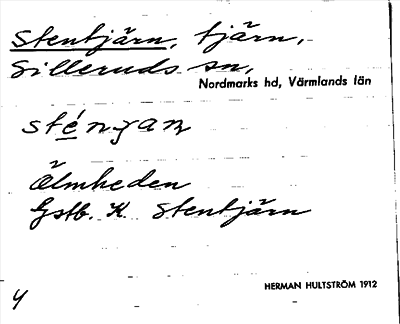 Stentjärn, tjärn,
Silleruds sn,
Nordmarks hd, Värmlands län
sténʒan
Älmheden
Gstb. K. Stentjärn
HERMAN HULTSTRÖM 1912
4